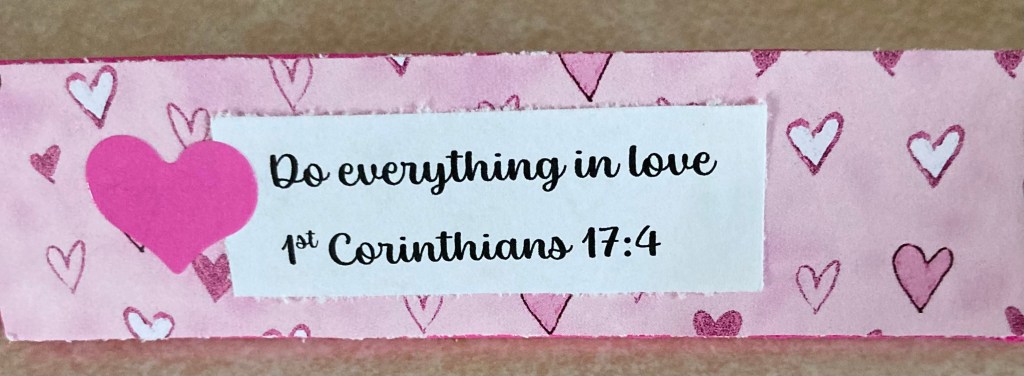 Do everything in love
1st Corinthians 17:4